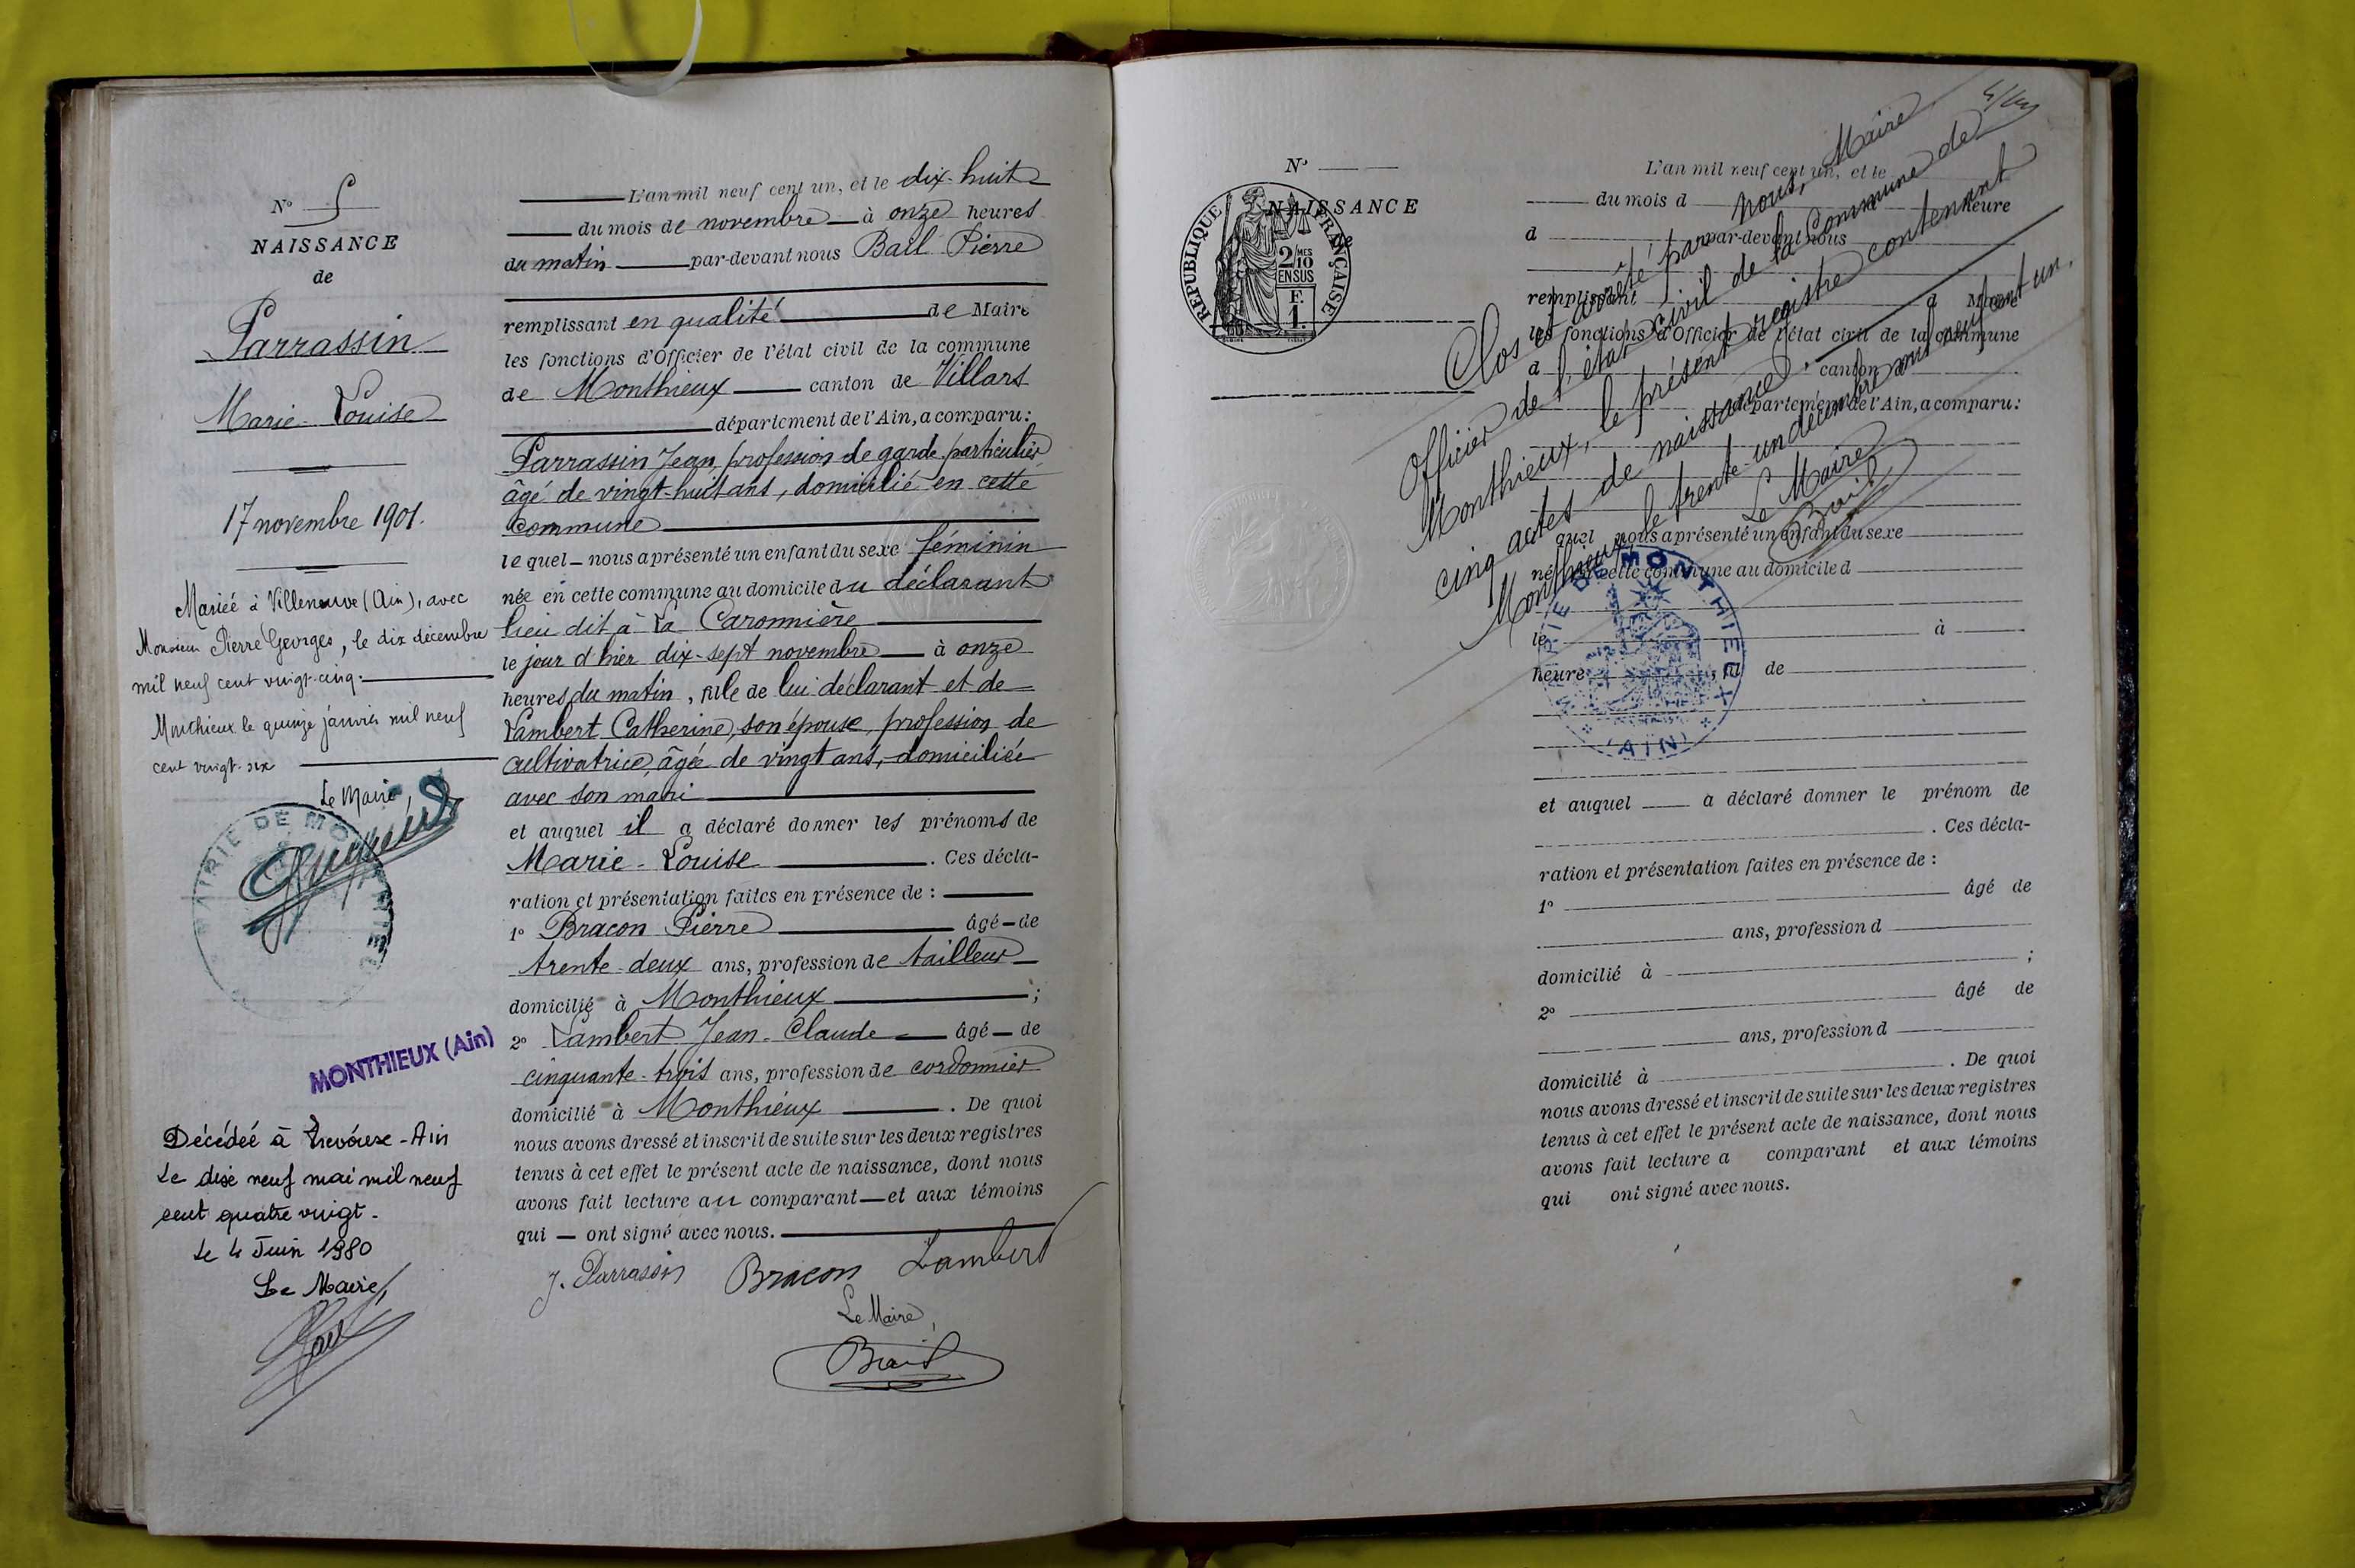 N° 5
NAISSANCE
de
Parrassin
Marie-Louise
17 novembre 1901.
Mariée à Villeneuve (Ain), avec
Monsieur Pierre Georges, le dix décembre
mil neuf cent vingt-cinq.
Monthieux le quinze janvier mil neuf
cent vingt-six
Le Maire,
MAIRIE DE MONTHIEUX
MONTHIEUX (Ain)
Décédée à -Ain
Le dixe neuf mai mil neuf
cent quatre vingt.
Le 4 Juin 1980
Le Maire,
L'an mil neuf cent un, et le dix-huit
du mois de novembre à onze heures
du matin par-devant nous Bail Pierre
remplissant en qualité de Maire
les fonctions d'Officier de l'état civil de la commune
de Monthieux canton de Villars
département de l'Ain, a comparu:
Parrassin Jean, profession de garde-particulier
âgé de vingt-huit ans, domicilié en cette
commune
lequel nous a présenté un enfant du sexe féminin
née en cette commune au domicile du déclarant
lieu dit à La Caronnière
le jour d'hier dix-sept novembre à onze
heures du matin, fille de lui déclarant et de
Lambert Catherine, son épouse, profession de
cultivatrice, âgée de vingt ans, domiciliée
avec son mari
et auquel il a déclaré donner les prénoms de
Marie-Louise. Ces décla-
ration et présentation faites en présence de :
1° Bracon Pierre âgé de
trente-deux ans, profession de tailleur
domicilié à Monthieux ;
2° Lambert Jean-Claude âgé de
cinquante-trois ans, profession de cordonnier
domicilié à Monthieux. De quoi
nous avons dressé et inscrit de suite sur les deux registres
tenus à cet effet le présent acte de naissance, dont nous
avons fait lecture au comparant et aux témoins
qui ont signé avec nous.
J. Parrassin Bracon Lambert
Le Maire,
Bail
N°
NAISSANCE
de
RÉPUBLIQUE FRANÇAISE
2/10 MES
EN SUS
F.
1.
L'an mil neuf cent un, et le
du mois d heure
d par-devant nous
remplissant d Maire
les fonctions d'Officier de l'état civil de la commune
d canton
département de l'Ain, a comparu:
quel nous a présenté un enfant du sexe
né en cette commune au domicile d
le à
heure , fil de
et auquel a déclaré donner le prénom de
. Ces décla-
ration et présentation faites en présence de :
1° âgé de
ans, profession d
domicilié à ;
2° âgé de
ans, profession d
domicilié à . De quoi
nous avons dressé et inscrit de suite sur les deux registres
tenus à cet effet le présent acte de naissance, dont nous
avons fait lecture a comparant et aux témoins
qui ont signé avec nous.
Clos et arrêté par nous, Maire
Officier de l'état civil de la Commune de
Monthieux, le présent registre contenant
cinq actes de naissance.
Monthieux, le trente-un décembre mil neuf cent un.
Le Maire
Bail
MAIRIE DE MONTHIEUX
(AIN)